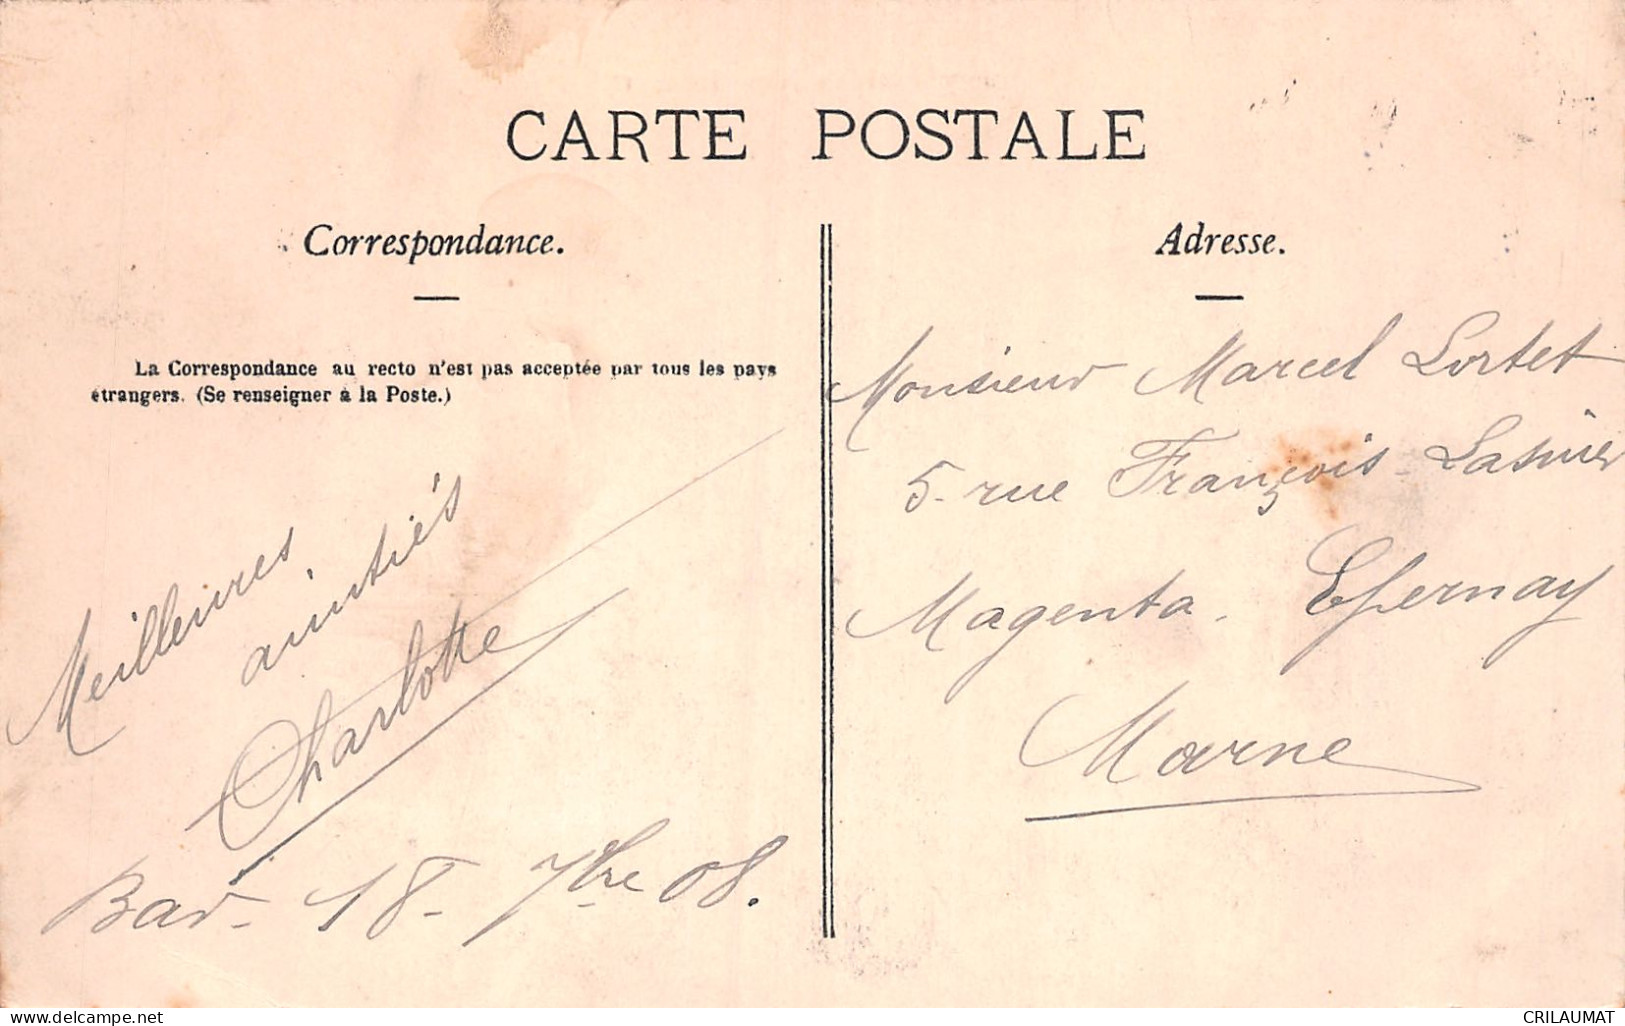 CARTE POSTALE
Correspondance.
La Correspondance au recto n'est pas acceptée par tous les pays
étrangers. (Se renseigner à la Poste.)
Meilleures
amitiés
Charlotte
Bar- 18- 7bre 08.
Adresse.
Monsieur Marcel Lortet
5- rue François-
Magenta. Epernay
Marne
delcampe.net
CRILAUMAT